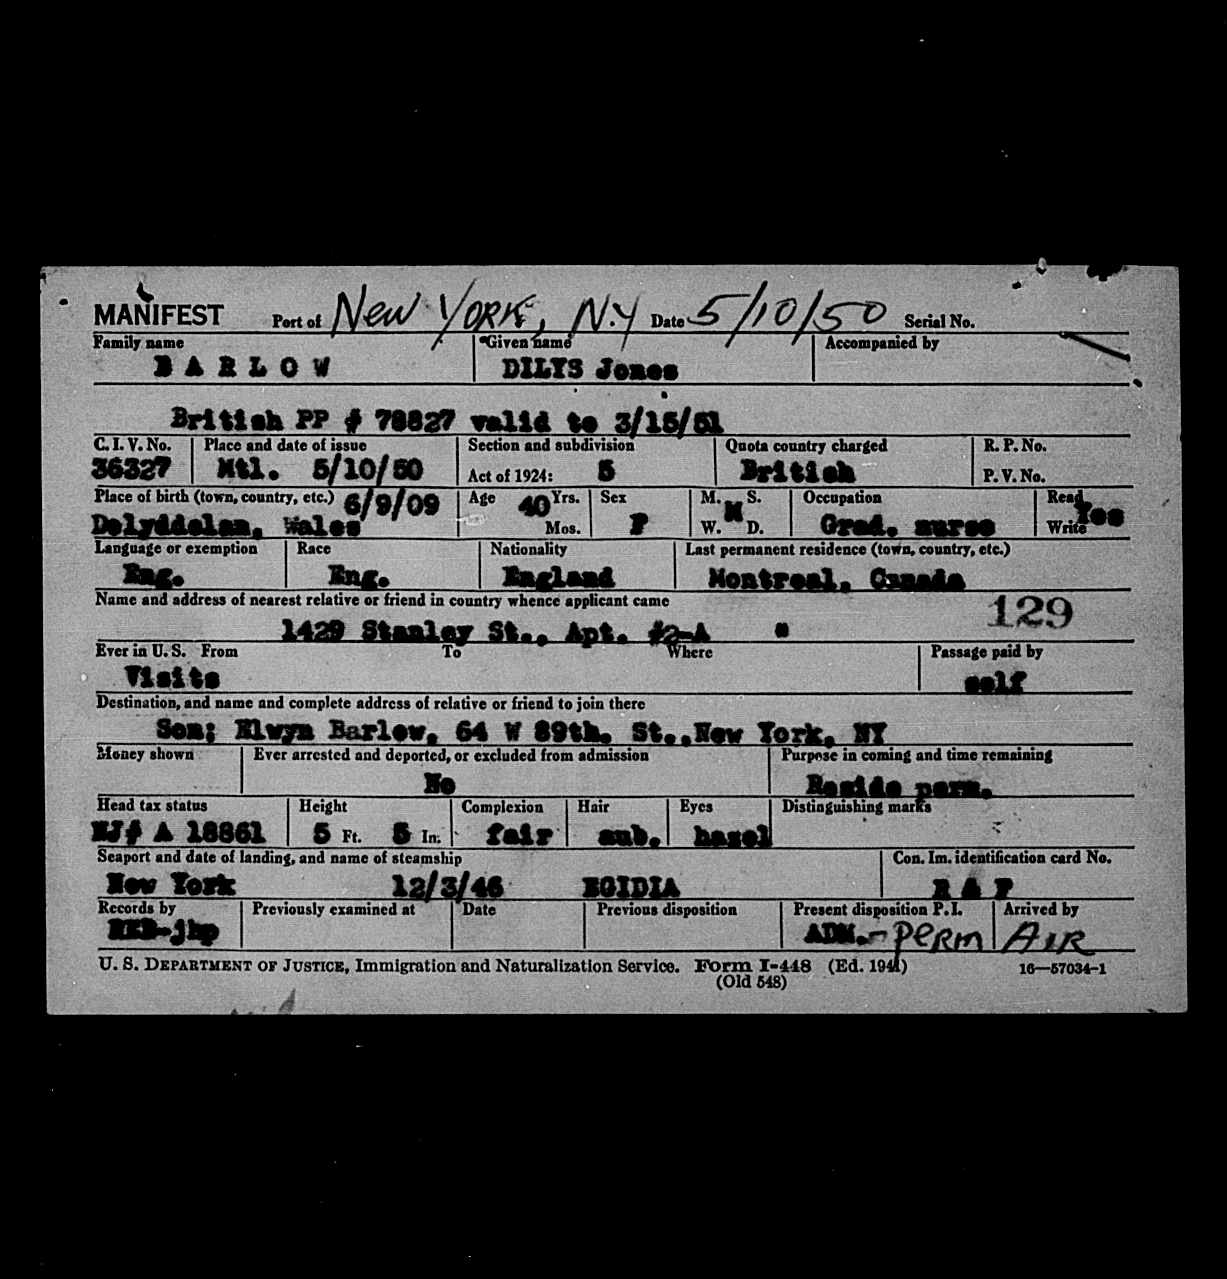 MANIFEST Port of New York, N.Y Date 5/10/50 Serial No.
Family name Given name Accompanied by
BARLOW DILYS Jones
British PP # 78827 valid to 3/15/51
C. I. V. No. Place and date of issue Section and subdivision Quota country charged R. P. No.
36327 Mtl. 5/10/50 Act of 1924: 5 British P. V. No.
Place of birth (town, country, etc.) 6/9/09 Age 40 Yrs. Sex M. S. Occupation Read Yes
Dolyddelan, Wales Mos. F M W. D. Grad. nurse Write
Language or exemption Race Nationality Last permanent residence (town, country, etc.)
Eng. Eng. England Montreal, Canada
Name and address of nearest relative or friend in country whence applicant came
129
1429 Stanley St., Apt. #2-A "
Ever in U. S. From To Where Passage paid by
Visits self
Destination, and name and complete address of relative or friend to join there
Son; Elwyn Barlow, 64 W 89th. St., New York, NY
Money shown Ever arrested and deported, or excluded from admission Purpose in coming and time remaining
No Reside perm.
Head tax status Height Complexion Hair Eyes Distinguishing marks
NJ# A 18861 5 Ft. 5 In. fair aub. hazel
Seaport and date of landing, and name of steamship Con. Im. identification card No.
New York 12/3/46 EGIDIA R & F
Records by Previously examined at Date Previous disposition Present disposition P. I. Arrived by
ADM.-PERM AIR
U. S. DEPARTMENT OF JUSTICE, Immigration and Naturalization Service. Form I-448 (Ed. 1941) 16—57034-1
(Old 548)